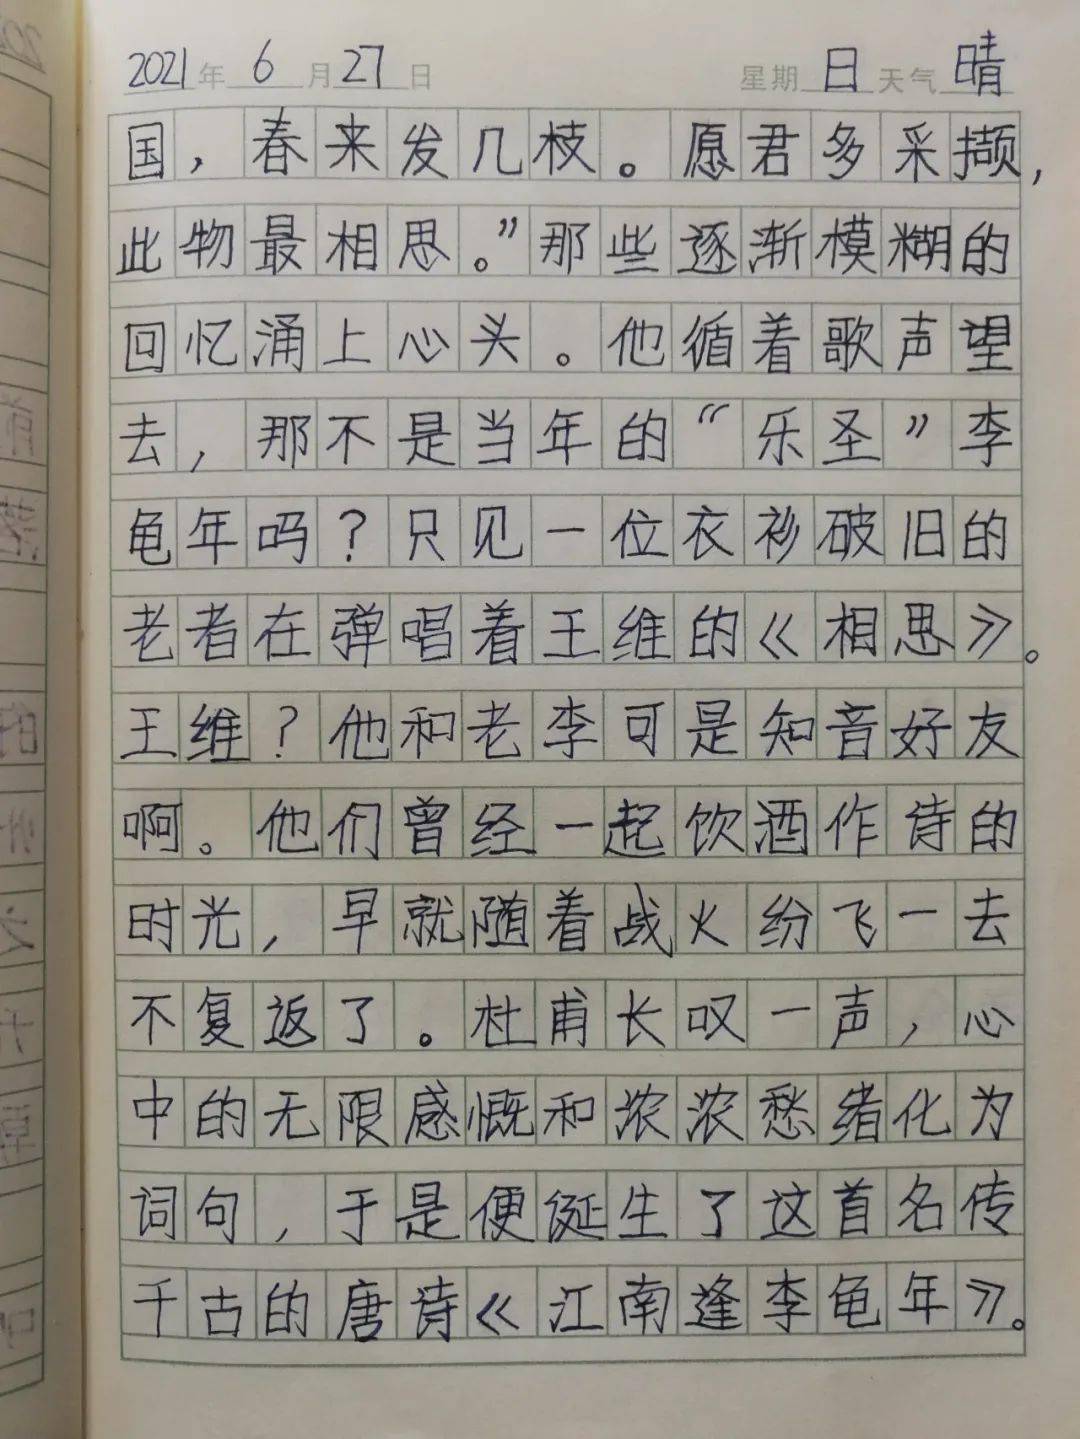 2021年6月27日 星期日天气晴
国，春来发几枝。愿君多采撷，
此物最相思。”那些逐渐模糊的
回忆涌上心头。他循着歌声望
去，那不是当年的“乐圣”李
龟年吗？只见一位衣衫破旧的
老者在弹唱着王维的《相思》。
王维？他和老李可是知音好友
啊。他们曾经一起饮酒作诗的
时光，早就随着战火纷飞一去
不复返了。杜甫长叹一声，心
中的无限感慨和浓浓愁绪化为
词句，于是便诞生了这首名传
千古的唐诗《江南逢李龟年》。